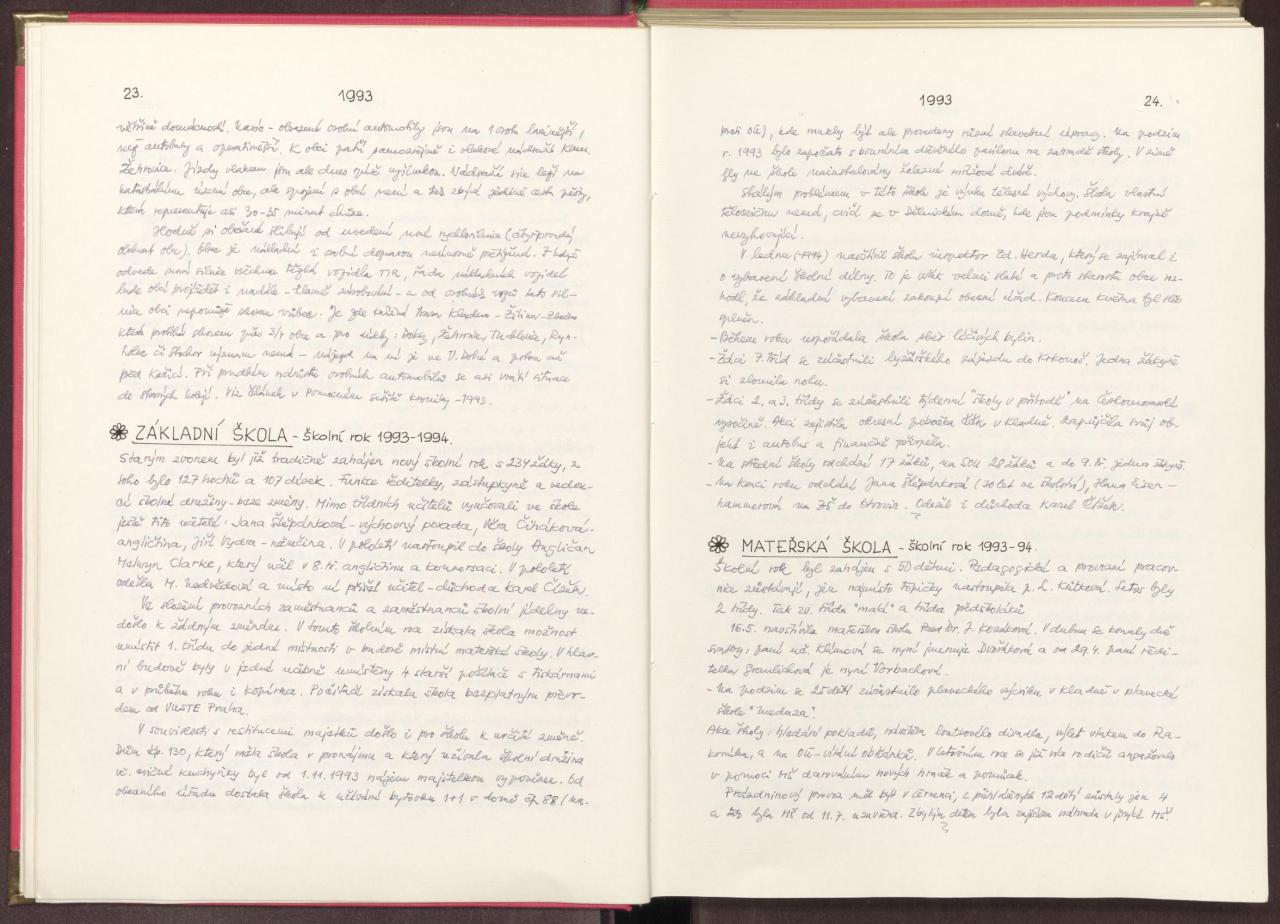 23.
1993
většině domácností. Navíc - obsazené osobní automobily jsou na 1 osobu lacinější,
než autobusy a operativnější. K obci patří samozřejmě i vlakové nádraží Kam.
Žehrovice. Jízdy vlakem jsou ale dnes spíše výjimkou. Nádraží sice leží na
katastrálním území obce, ale spojení s obcí není a tak zbývá jedině cesta pěšky,
která representuje asi 30-35 minut chůze.
Hodně si občané slibují od uvedení nové rychlosilnice (čtyřproudý
obchvat obce). Obec je nákladní i osobní dopravou neúnosně přetížena. I když
odvede nová silnice všechna těžká vozidla TIR, řada nákladních vozidel
bude obcí projíždět i nadále - hlavně zásobování - a od osobních vozů tato sil-
nice obci nepomůže skoro vůbec. Je zde trasa Kladno - Žilina -
která probíhá skoro přes 3/4 obce a pro směry: Doksy, Žehrovice, Tuchlovice, Ryn-
holec či Stochov význam nemá - nájezd na ni je ve V. Dobré a potom až
před Kačicí. Při prudkém nárůstu osobních automobilů se asi vrátí situace
do starých kolejí. Viz článek v Pomocném sešitě kroniky - 1993.
ZÁKLADNÍ ŠKOLA - školní rok 1993-1994.
Starým zvonem byl již tradičně zahájen nový školní rok s 234 žáky, z
toho bylo 127 hochů a 107 dívek. Funkce ředitelky, zástupkyně a vedou-
cí školní družiny - beze změny. Mimo třídních učitelů vyučovali ve škole
ještě tito učitelé: Jana Štěpánková - výchovný poradce, Věra Čiháková -
angličtina, Jiří Vydra - němčina. V pololetí nastoupil do školy Angličan
Malwyn Clarke, který učil v 8. tř. angličtinu a konversaci. V pololetí
odešla M. Nedvědová a místo ní přišel učitel - důchodce Karel Čížek.
Ve složení provozních zaměstnanců a zaměstnanců školní jídelny ne-
došlo k žádným změnám. V tomto školním roce získala škola možnost
umístit 1. třídu do jedné místnosti v budově místní mateřské školy. V hlav-
ní budově byly v jedné učebně umístěny 4 starší počítače s tiskárnami
a v průběhu roku i kopírka. Počítače získala škola bezplatným převo-
dem od VÚSTE Praha.
V souvislosti s restitucemi majetků došlo i pro školu k určité změně.
Dům čp. 130, který měla škola v pronájmu a který užívala školní družina
vč. cvičné kuchyňky byl od 1.11.1993 nájem majitelkou vypovězen. Od
obecního úřadu dostala škola k užívání bytovku 1+1 v domě čp. 88 (na-
1993
24.
proti OÚ), kde musely být ale provedeny různé stavební úpravy. Na podzim
r. 1993 bylo započato s bouráním dřevěného pavilonu na zahradě školy. V zimě
byly ve škole nainstalovány železné mřížové dveře.
Stálým problémem v této škole je výuka tělesné výchovy. Škola vlastní
tělocvičnu nemá, cvičí se v Dělnickém domě, kde jsou podmínky krajně
nevyhovující.
V lednu (1994) navštívil školu inspektor Zd. Herda, který se zajímal i
o vybavení školní dílny. To je však velmi slabé a proto starosta obce roz-
hodl, že základní vybavení zakoupí obecní úřad. Koncem května byl slib
splněn.
- Během roku uspořádala škola sběr léčivých bylin.
- Žáci 7. tříd se zúčastnili lyžařského zájezdu do Krkonoš. Jedna žákyně
si zlomila nohu.
- Žáci 2. a 3. třídy se zúčastnili týdenní "školy v přírodě" na Českomoravské
vysočině. Akci zajistila okresní pobočka v Kladně. Zapůjčila svůj ob-
jekt i autobus a finančně přispěla.
- Na střední školy odchází 17 žáků, na SOU 28 žáků a do 9. tř. jedna žákyně.
- Na konci roku odchází Jana Štěpánková (20 let ve školství), Hana Eisen-
hammerová na ZŠ do Otvovic. Odešel i důchodce Karel Čížek.
MATEŘSKÁ ŠKOLA - školní rok 1993-94.
Školní rok byl zahájen s 50 dětmi. Pedagogické a provozní pracov-
nice zůstávají, jen namísto topičky nastoupila p. L. Klitková. Letos byly
2 třídy. Tak zv. třída "malá" a třída předškoláků.
16.5. navštívila mateřskou školu Dr. J. Kozáková. V dubnu se konaly dvě
svatby: paní uč. Klímová se nyní jmenuje Dvořáková a od 29.4. paní ředi-
telka Greulichová je nyní Vorbachová.
- Na podzim se 25 dětí zúčastnilo plaveckého výcviku v Kladně v plavecké
škole "Medúza".
Akce školy: hledání pokladů, návštěva loutkového divadla, výlet vlakem do Ra-
kovníka, a na OÚ - vítání občánků. V letošním roce se již více rodičů angažovalo
v pomoci MŠ darováním nových hraček a pomůcek.
Prázdninový provoz měl být v červenci, z přihlášených 12 dětí zůstaly jen 4
a tak byla MŠ od 11.7. uzavřena. Zbylým dětem byla zajištěna náhrada v jiných MŠ.